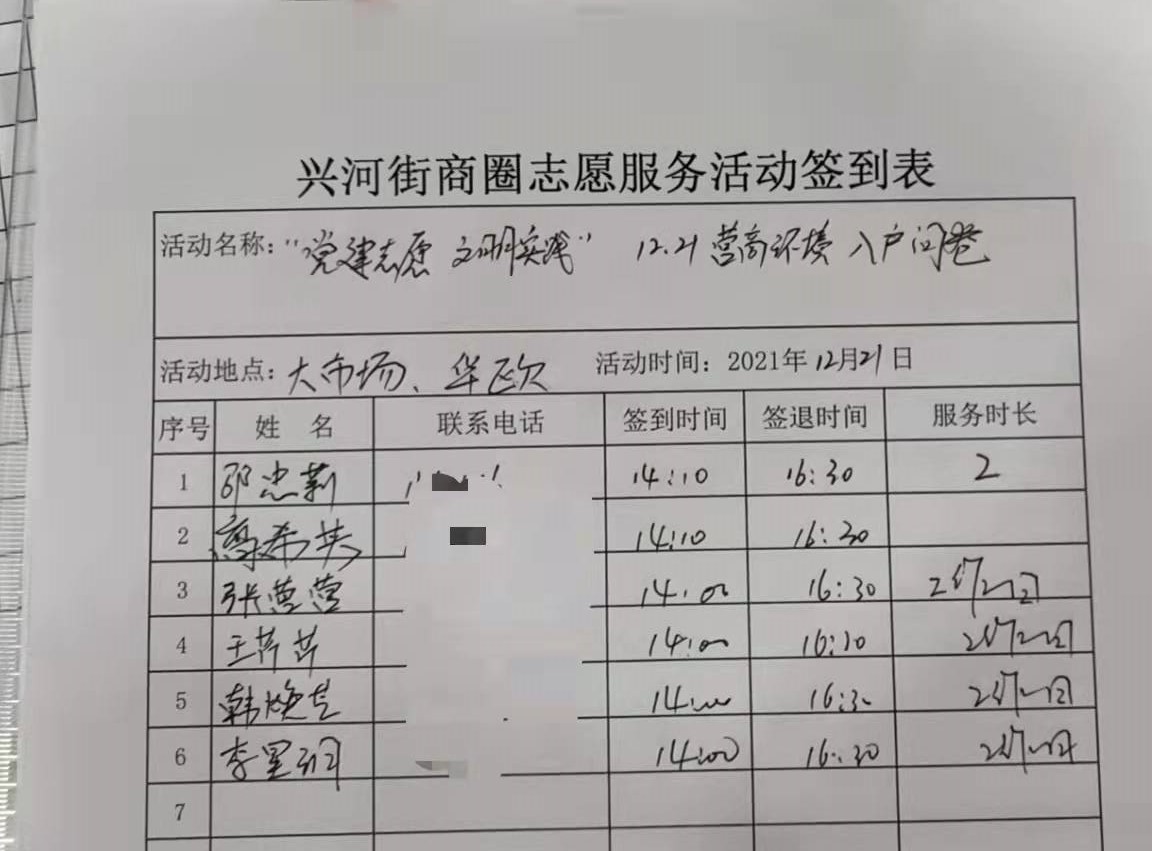 兴河街商圈志愿服务活动签到表
活动名称："党建志愿 文明实践" 12.21 营商环境 入户问卷
活动地点：大市场、华欧 活动时间：2021年12月21日
序号 姓 名 联系电话 签到时间 签退时间 服务时长
1 邵忠莉 14:10 16:30 2
2 希英 14:10 16:30
3 张莹莹 14:00 16:30
4 王芹芹 14:00 16:30
5 韩焕芝 14:00 16:30
6 李 14:00 16:30
7